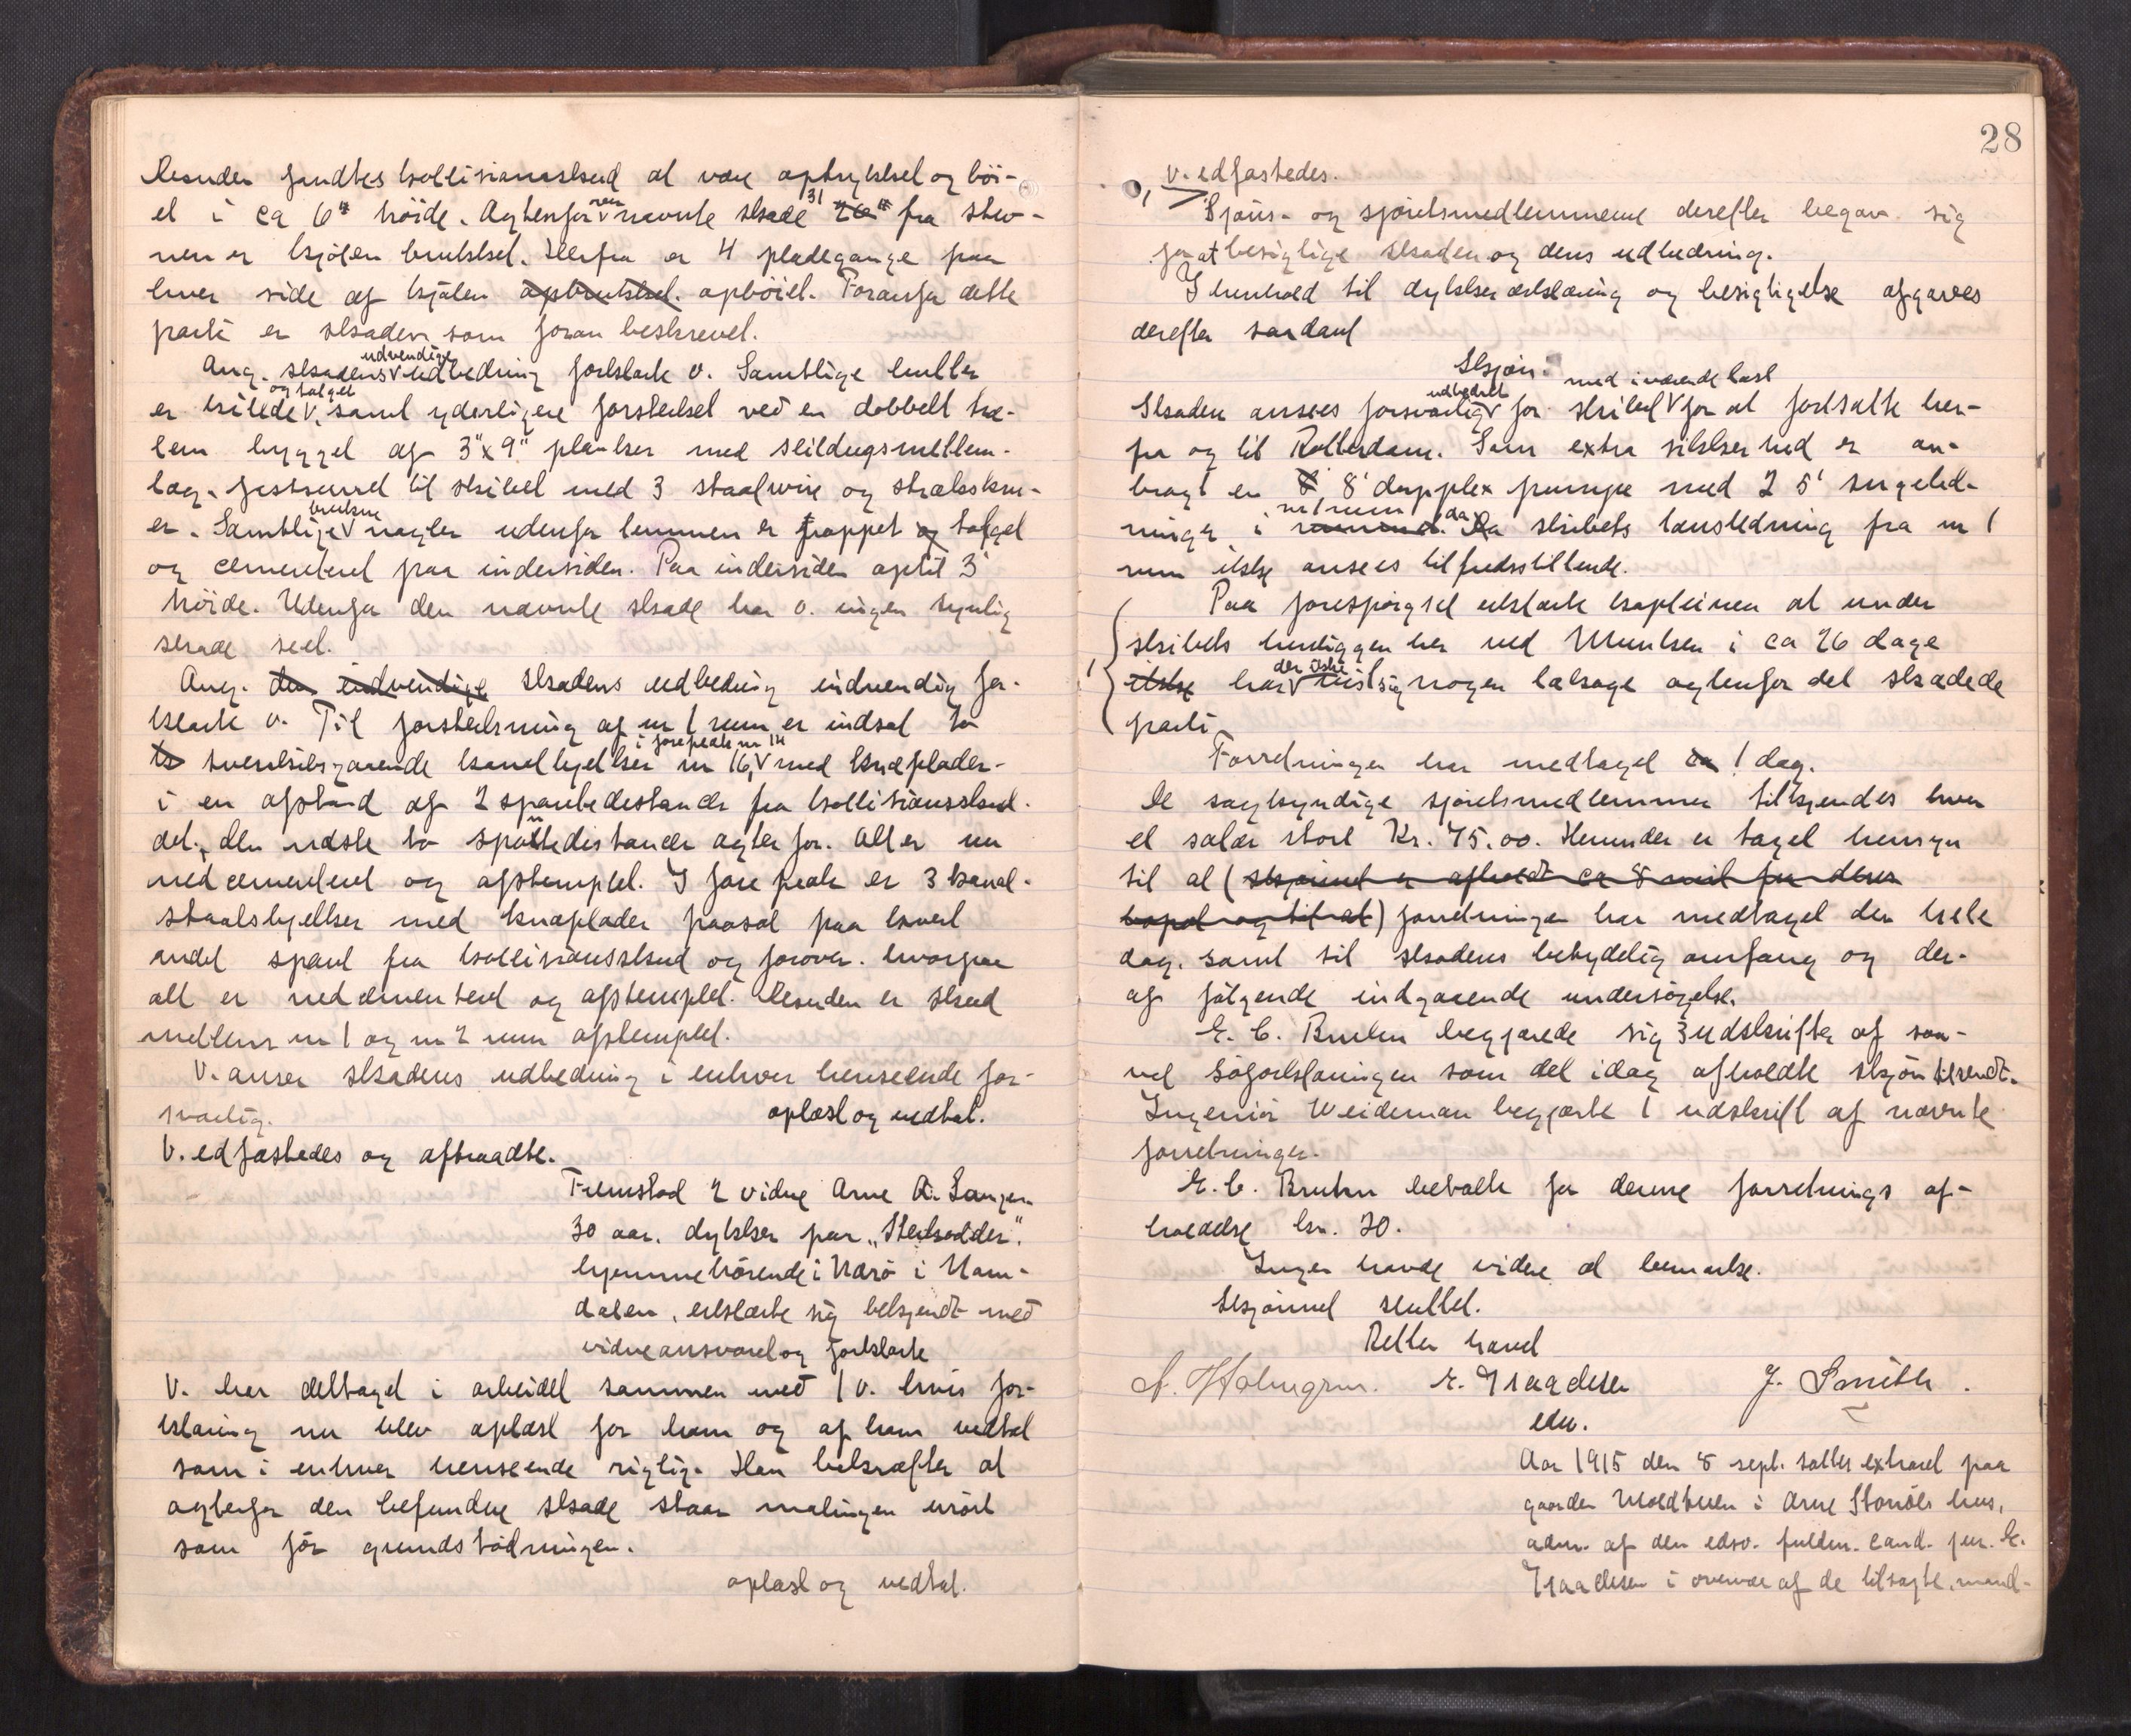 Desuden fandtes kollisionsskud at være optrykket og böi-
et i ca 6" höide. Agtenfor nævnte skade 31 26" fra stev-
nen er kjölen brukket. Herfra er 4 pladegange paa
hver side af kjölen opbrukket. opböiet. Foranfor dette
parti er skaden som foran beskrevet.
Ang. skadens udvendige udbedring forklarte v. Samtlige huller
er kilede og talget, samt yderligere forsterket ved en dobbelt træ-
lem bygget af 3"x9" planker med seildugsmellem-
læg. fastsurret til skibet med 3 staalwire og strækskru-
er. Samtlige brukne nagler udenfor lemmen er proppet og talget
og cementeret paa indersiden. Paa indersiden optil 3'
höide. Udenfor den nævnte skade har v. ingen synlig
skade seet.
Ang. den indvendige skadens udbedring indvendig for-
klarte v. Til forsterkning af nr 1 rum er indsat to
to tverskibsgaaende kanalbjelker nr 16, i forepeak nr 14 med knæplader.
i en afstand af 2 spantedistancer fra kollisionsskud-
det, den næste to spantedistancer agter for. Alt er nu
nedcementeret og afstemplet. I fore peak er 3 kanal-
staalsbjelker med knæplader paasat paa hvert
andet spant fra kollisionsskud og forover. hvorpaa
alt er nedcementeret og afstemplet. Desuden er skud
mellem nr 1 og nr 2 rum afstemplet.
V. anser skadens udbedring i enhver henseende for-
svarlig. oplæst og vedtat.
V. edfæstedes og aftraadte.
Fremstod 2 vidne Arne A.
30 aar. dykker paa
hjemmehörende i Nærö i Nam-
dalen, erklærte sig bekjendt med
vidneansvaret og forklarte
V. har deltaget i arbeidet sammen med 1 v. hvis for-
klaring nu blev oplæst for ham og af ham vedtat
som i enhver henseende rigtig. Han bekræfter at
agtenfor den befundne skade staar malingen urört
som för grundstödningen.
oplæst og vedtat.
28
v. edfæstedes.
Skjöns- og sjöretsmedlemmerne derefter begav sig
for at besigtige skaden og dens udbedring.
I henhold til dykkererklæring og besigtigelse afgaves
derefter saadant
Skjön:
Skaden ansees forsvarlig udbedret for skibet med iværende last for at fortsætte her-
fra og til Rotterdam. Som extra sikkerhed er an-
bragt en 8' dupplex pumpe med 2 5' sugeled-
ninger i nr 1 rum da skibets lænsledning fra nr 1
rum ikke ansees tilfredsstillende.
Paa forespörgsel erklærte kapteinen at under
skibets henliggen her ved Munken i ca 26 dage
ikke har der ikke vist sig nogen lækage agtenfor det skadede
parti
Forretningen har medtaget ca 1 dag.
De sagkyndige sjöretsmedlemmer tilkjendes hver
et salær stort Kr. 75.00. Herunder er taget hensyn
til at (skjönnet er afholdt ca 8 mil fra deres
bopæl og til at) forretningen har medtaget den hele
dag. samt til skadens betydelig omfang og der-
af fölgende indgaaende undersögelse.
E. C. Bruhn begjærede sig 3 udskrifter af saa-
vel söforklaringen som det idag afholdte skjön tilsendt.
Ingeniör Weideman begjærte 1 udskrift af nævnte
forretninger.
E. C. Bruhn betalte for denne forretnings af-
holdelse kr. 20.
Ingen havde videre at bemærke.
Skjönnet sluttet.
Retten hævet
A. Holmgren. E. Isaachsen J. Smith.
edv.
Aar 1915 den 8 sept. sattes extraret paa
gaarden i Arne hus,
adm. af den edsv. fuldm. cand. jur. E.
Isaachsen i overvær af de tilsagte mænd-